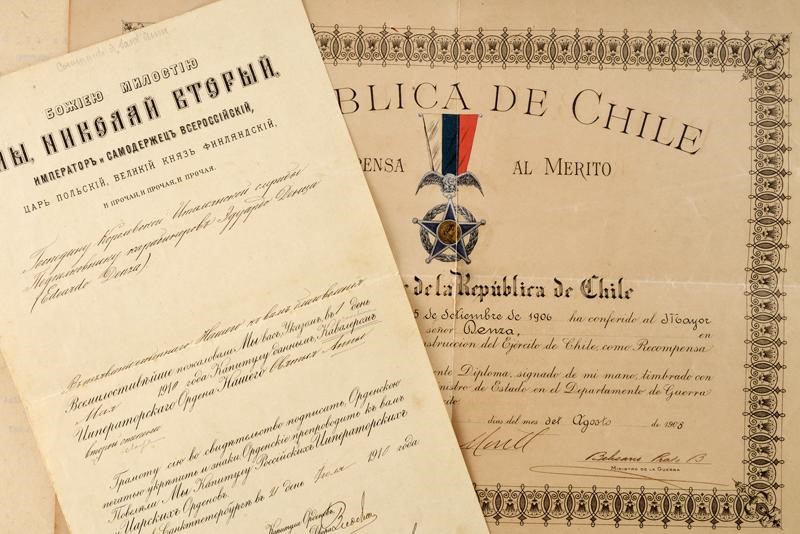 БОЖІЕЮ МИЛОСТІЮ
МЫ, НИКОЛАЙ ВТОРЫЙ,
ИМПЕРАТОРЪ и САМОДЕРЖЕЦЪ ВСЕРОССІЙСКІЙ,
ЦАРЬ ПОЛЬСКІЙ, ВЕЛИКІЙ КНЯЗЬ ФИНЛЯНДСКІЙ,
И ПРОЧАЯ, И ПРОЧАЯ, И ПРОЧАЯ.
Господину Королевской Итальянской службы
Подполковнику карабинеровъ Эдуардо Денца
(Edoardo Denza)
Нашего къ вамъ благоволенія
Всемилостивѣйше пожаловали Мы васъ, Указомъ въ 1 день
Мая 1910 года Капитулу даннымъ, Кавалеромъ
Императорскаго Ордена Нашего Святыя Анны
второй степени
Грамоту сію во свидѣтельство подписать, Орденскою
печатью укрѣпить и знаки Орденскіе препроводить къ вамъ
Повелѣли Мы Капитулу Россійскихъ Императорскихъ
и Царскихъ Орденовъ.
Санктпетербургѣ въ 21 день Іюля 1910 года
BLICA DE CHILE
PENSA AL MERITO
de la República de Chile
5 de Setiembre de 1906 ha conferido al Mayor
señor Denza, en
strucción del Ejército de Chile, como Recompensa
ente Diploma, signado de mi mano, timbrado con
nistro de Estado en el Departamento de Guerra
dias del mes del Agosto de 1908
MINISTRO DE LA GUERRA